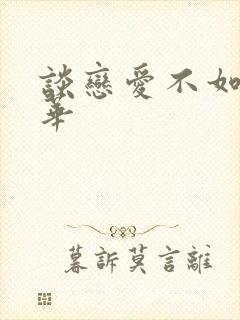 談戀愛不如
華
暮訴莫言離